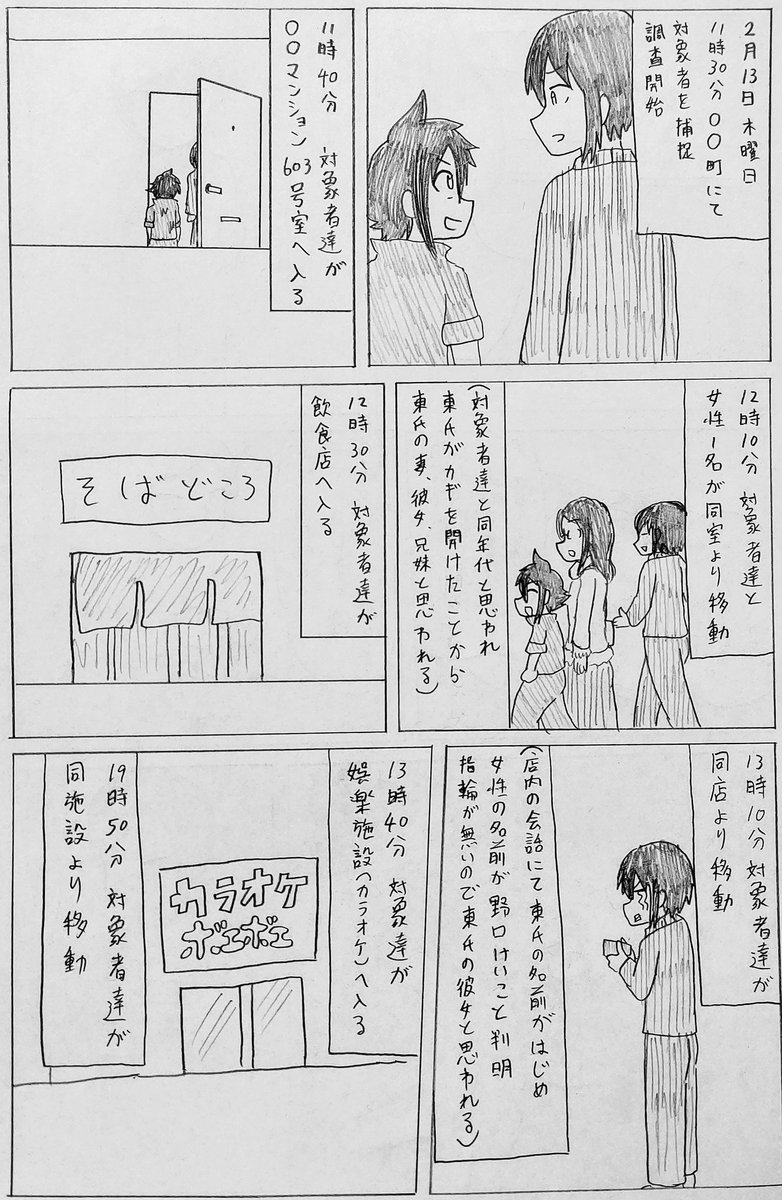 2月13日木曜日
11時30分 〇〇町にて
対象者を捕捉
調査開始
11時40分 対象者達が
〇〇マンション603号室へ入る
12時10分 対象者達と
女性1名が同室より移動
(対象者達と同年代と思われ
東氏がカギを開けたことから
東氏の妻、彼女、兄妹と思われる)
12時30分 対象者達が
飲食店へ入る
そばどころ
13時10分 対象者達が
同店より移動
(店内の会話にて東氏の名前がはじめ
女性の名前が野口けいこと判明
指輪が無いので東氏の彼女と思われる)
13時40分 対象達が
娯楽施設(カラオケ)へ入る
カラオケ
ボエボエ
19時50分 対象者達が
同施設より移動